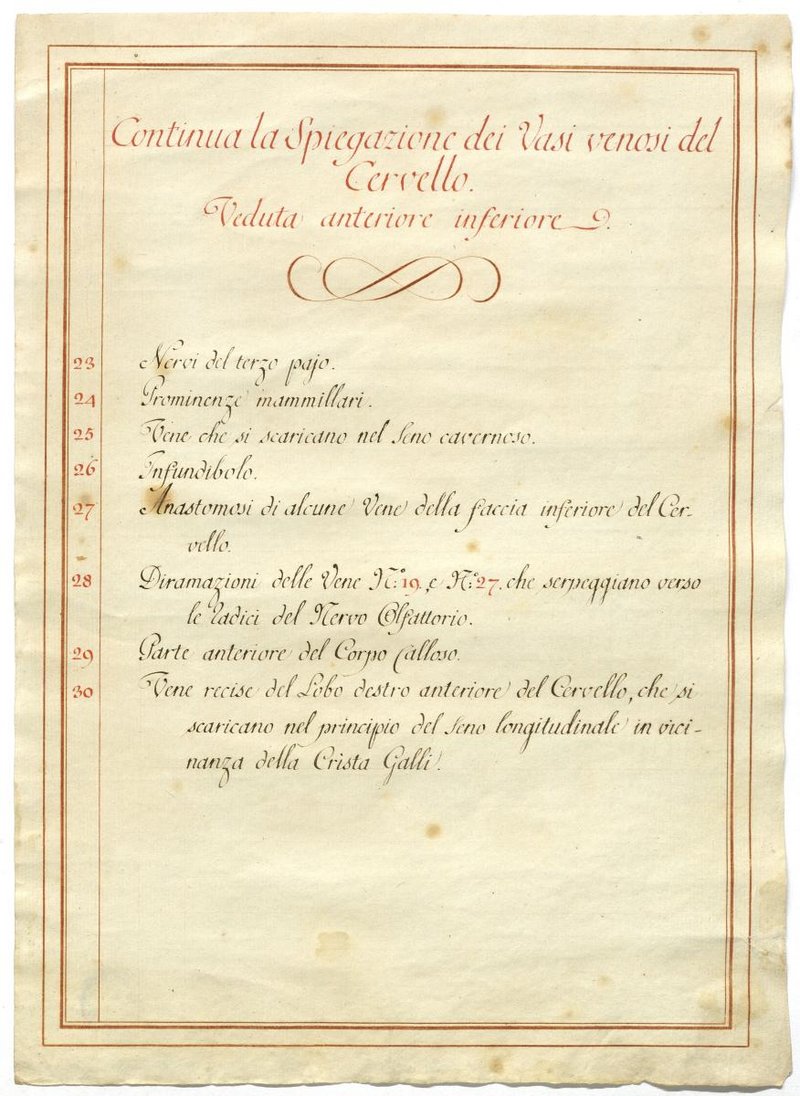 Continua la Spiegazione dei Vasi venosi del
Cervello.
Veduta anteriore inferiore
23 Nervi del terzo pajo.
24 Prominenze mammillari.
25 Vene che si scaricano nel Seno cavernoso.
26 Infundibolo.
27 Anastomosi di alcune Vene della faccia inferiore del Cer-
vello.
28 Diramazioni delle Vene N.º 19. e N.º 27. che serpeggiano verso
le radici del Nervo Olfattorio.
29 Parte anteriore del Corpo Calloso.
30 Vene recise del Lobo destro anteriore del Cervello, che si
scaricano nel principio del Seno longitudinale in vici-
nanza della Crista Galli.